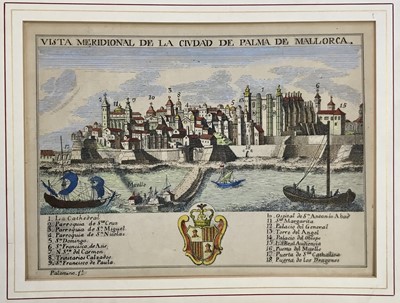 VISTA MERIDIONAL DE LA CIVDAD DE PALMA DE MALLORCA.
Muelle
1. La Cathedral
2. Parroquia de Sta Cruz
3. Parroquia de Sn Miguel
4. Parroquia de Sn Nicolas
5. Sto Domingo.
6. Sn Francisco de Asis
7. N. Sra del Carmen
8. Trinitarios Calzados
9. Sn Francisco de Paula.
10. Ospital de Sn Antonio Abad
11. Sta Margarita
12. Palacio del General
13. Torre del Angel
14. Palacio del Obispo
15. Real Audiencia
16. Puerta del Muelle
17. Puerta de Sta Cathalina
18.
Palomino. ft.